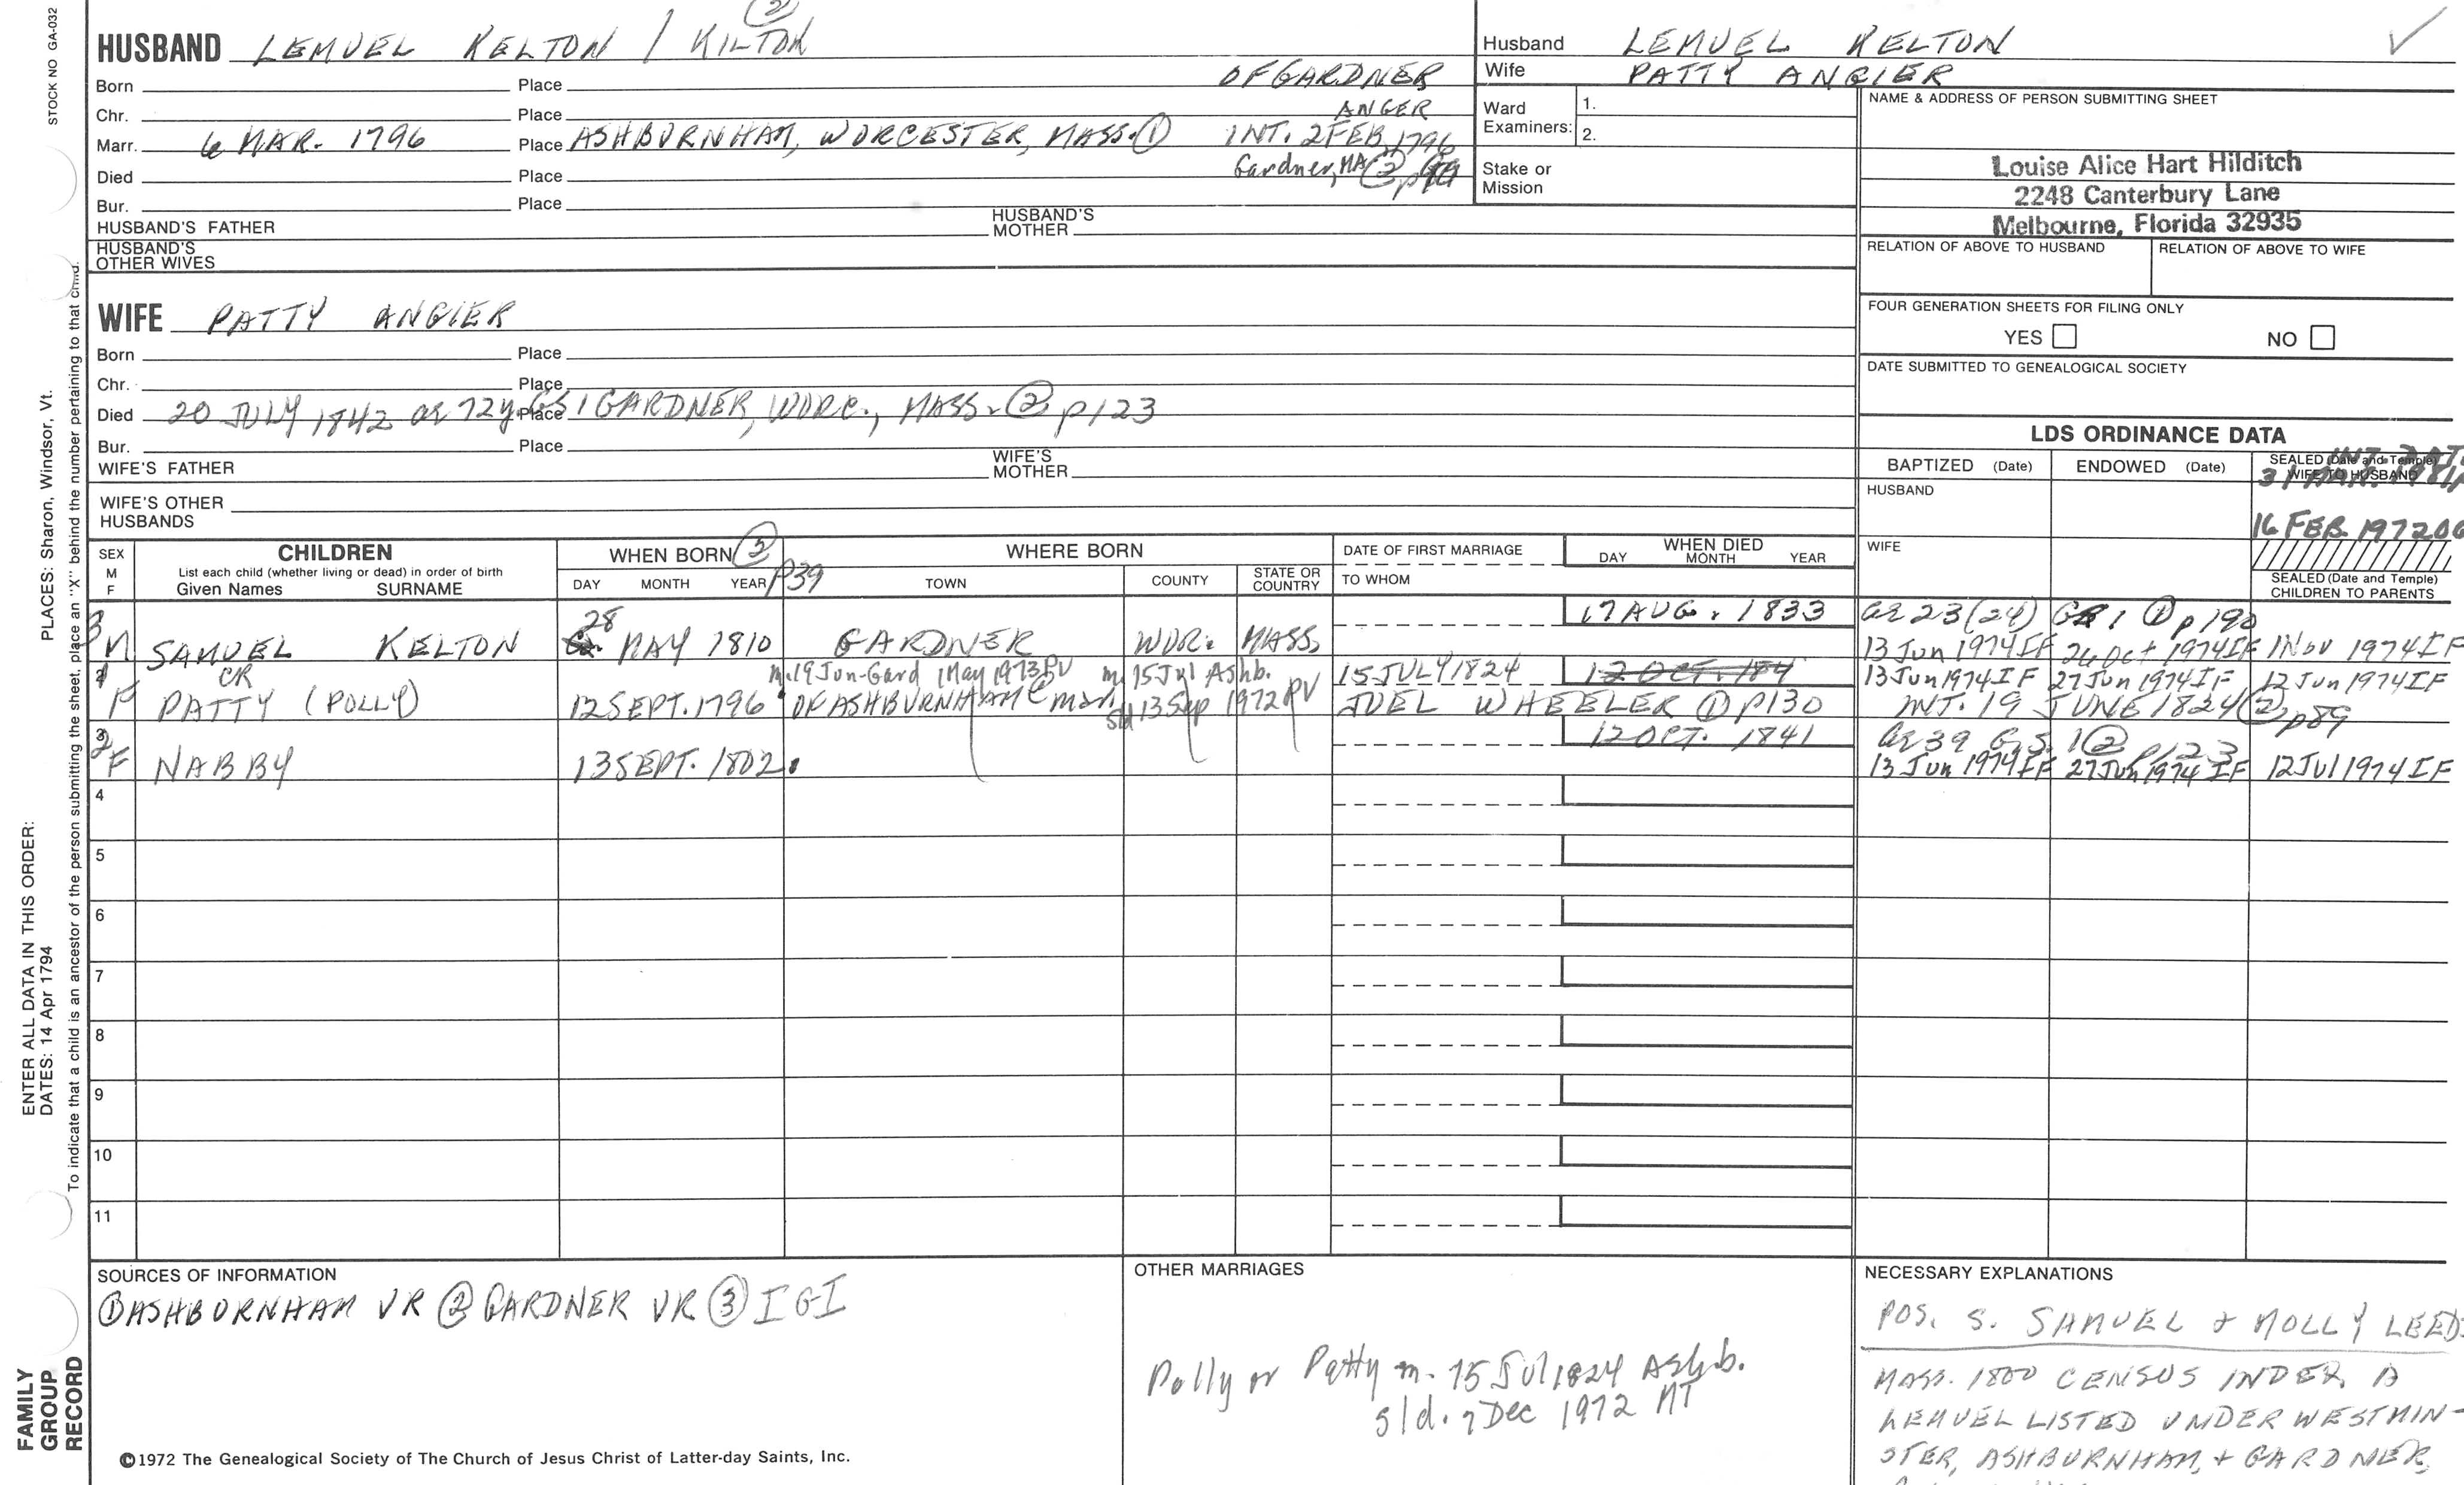 STOCK NO GA-032
PLACES: Sharon, Windsor, Vt.
ENTER ALL DATA IN THIS ORDER:
DATES: 14 Apr 1794
To indicate that a child is an ancestor of the person submitting the sheet, place an "X" behind the number pertaining to that child.
FAMILY
GROUP
RECORD
(2)
HUSBAND LEMUEL KELTON / KILTON
Born Place OF GARDNER
Chr. Place ANGER
Marr. 6 MAR. 1796 Place ASHBURNHAM, WORCESTER, MASS. (1) INT. 2 FEB 1796
Died Place Gardner, MA (2)
Bur. Place
HUSBAND'S FATHER HUSBAND'S MOTHER
HUSBAND'S OTHER WIVES
WIFE PATTY ANGIER
Born Place
Chr. Place
Died 20 JULY 1842 ae 72y. GS1 Place GARDNER, WORC., MASS. (2) p123
Bur. Place
WIFE'S FATHER WIFE'S MOTHER
WIFE'S OTHER HUSBANDS
Husband LEMUEL KELTON
Wife PATTY ANGIER
Ward Examiners: 1.
2.
Stake or Mission
NAME & ADDRESS OF PERSON SUBMITTING SHEET
Louise Alice Hart Hilditch
2248 Canterbury Lane
Melbourne, Florida 32935
RELATION OF ABOVE TO HUSBAND RELATION OF ABOVE TO WIFE
FOUR GENERATION SHEETS FOR FILING ONLY
YES NO
DATE SUBMITTED TO GENEALOGICAL SOCIETY
LDS ORDINANCE DATA
BAPTIZED (Date) ENDOWED (Date) SEALED (Date and Temple) WIFE TO HUSBAND
HUSBAND
16 FEB. 1972
WIFE
SEALED (Date and Temple)
CHILDREN TO PARENTS
SEX M F
CHILDREN
List each child (whether living or dead) in order of birth
Given Names SURNAME
WHEN BORN (3) p39
DAY MONTH YEAR
WHERE BORN
TOWN COUNTY STATE OR COUNTRY
DATE OF FIRST MARRIAGE
TO WHOM
WHEN DIED
DAY MONTH YEAR
17 AUG. 1833 ae 23 (24) GS 1 (1) p190
3 M SAMUEL KELTON 28 MAY 1810 GARDNER WOR. MASS. 13 Jun 1974 IF 26 Oct 1974 IF 1 Nov 1974 IF
m. 19 Jun-Gard 1 May 1973 PV m. 15 Jul Ashb. 15 JULY 1824 12 OCT. 184 13 Jun 1974 IF 27 Jun 1974 IF 12 Jun 1974 IF
1 F PATTY CR (POLLY) 12 SEPT. 1796 OF ASHBURNHAM sld 13 Sep 1972 PV JUEL WHEELER (1) p130 INT. 19 JUNE 1824 (2) p89
12 OCT. 1841 ae 39 G.S. 1 (2) p123
2 F NABBY 13 SEPT. 1802. 13 Jun 1974 IF 27 Jun 1974 IF 12 Jul 1974 IF
4
5
6
7
8
9
10
11
SOURCES OF INFORMATION
(1) ASHBURNHAM VR (2) GARDNER VR (3) IGI
©1972 The Genealogical Society of The Church of Jesus Christ of Latter-day Saints, Inc.
OTHER MARRIAGES
Polly or Patty m. 15 Jul 1824 Ashb.
sld. 7 Dec 1972 MT
NECESSARY EXPLANATIONS
POS. S. SAMUEL + MOLLY LEEDS
MASS. 1800 CENSUS INDEX, A
LEMUEL LISTED UNDER WESTMIN-
STER, ASHBURNHAM, + GARDNER,